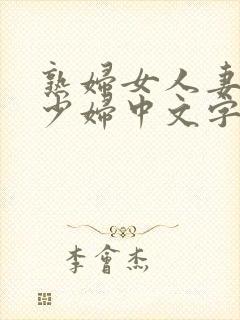 熟婦女人妻
少婦中文字
李會杰